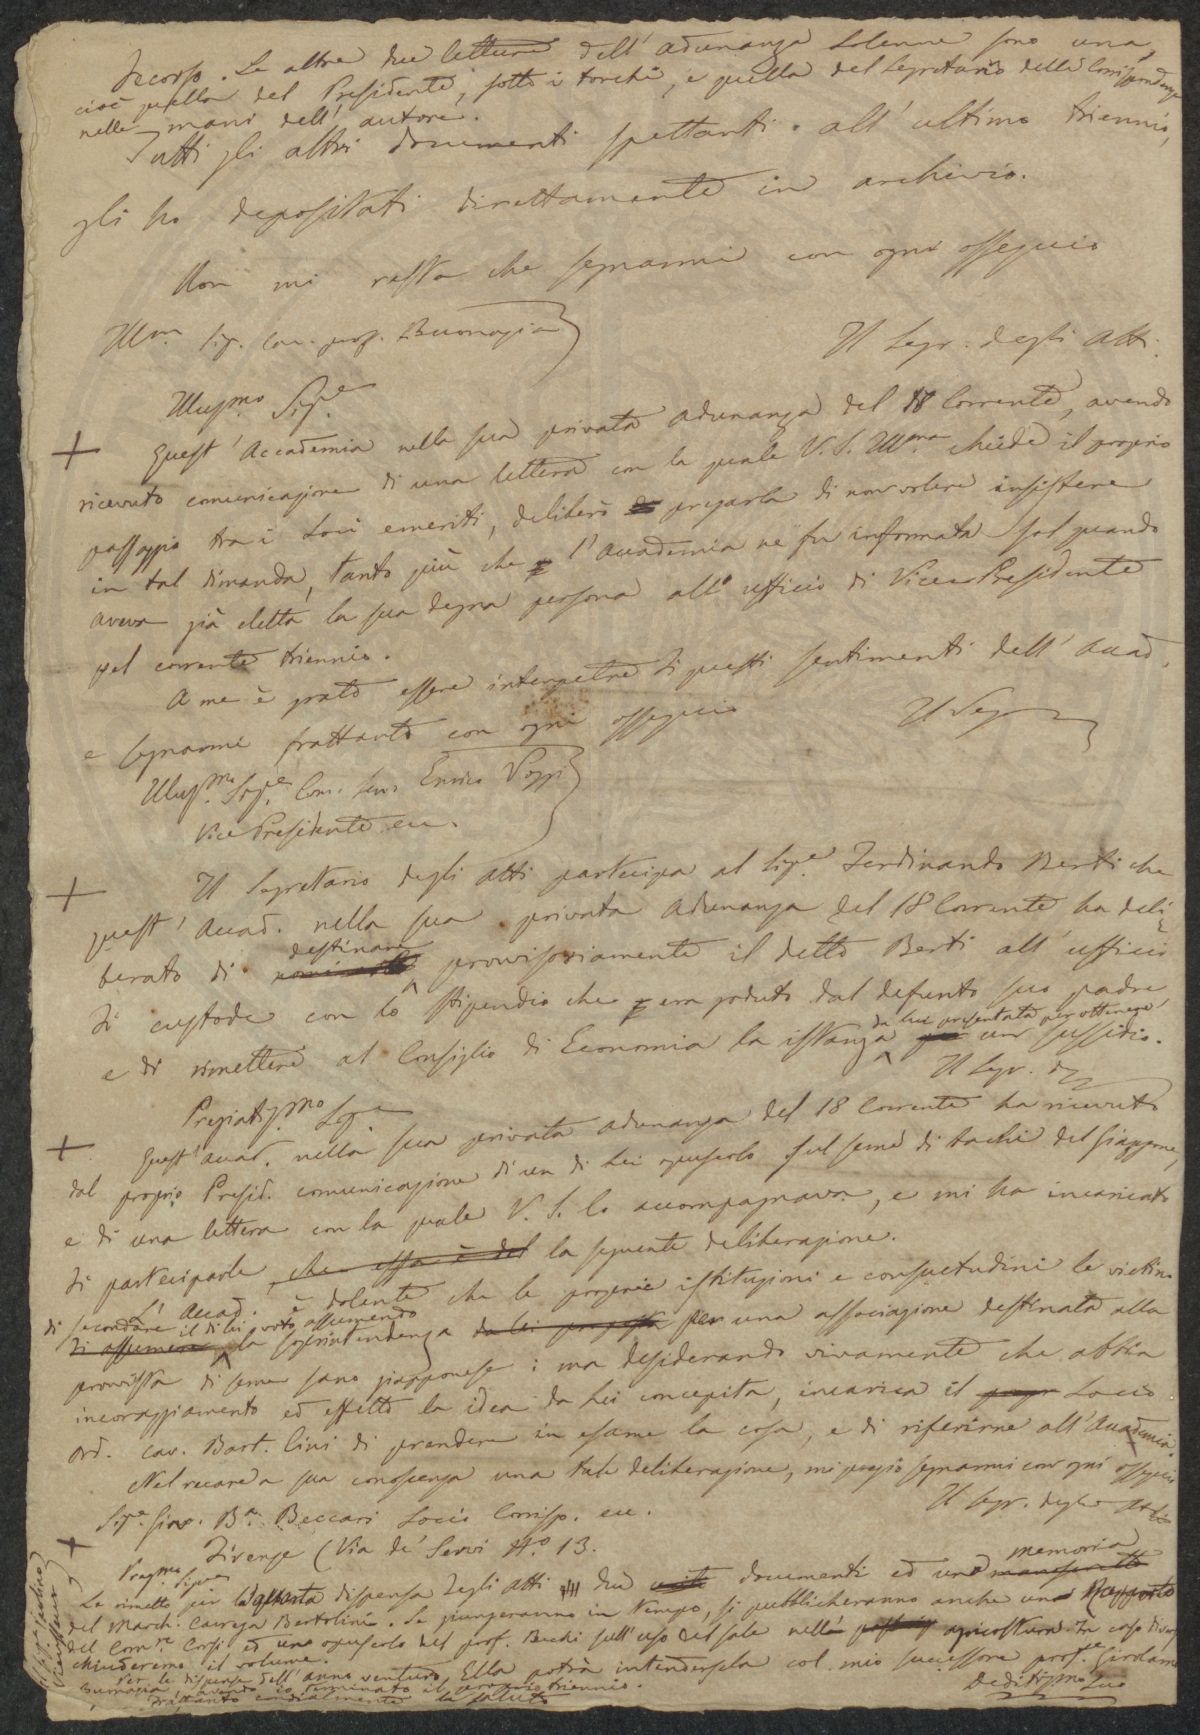 Incorso. Le altre due letture dell'adunanza solenne sono una,
cioè quella del Presidente, sotto i torchi, e quella del Segretario delle Corrispondenze
nelle mani dell'autore.
Tutti gli altri documenti spettanti all'ultimo triennio,
gli ho depositati direttamente in archivio.
Non mi resta che segnarmi con ogni ossequio
Illmo Sig. Cav. prof. Buonagia
Il Segr. degli Atti.
Illusmo Sige
+ Quest'Accademia nella sua privata adunanza del 18 Corrente, avendo
ricevuto comunicazione di una lettera con la quale V. S. Illma chiede il proprio
passaggio tra i Soci emeriti, deliberò pregarla di non volere insistere
in tal dimanda, tanto più che l'Accademia ne fu informata sol quando
aveva già eletta la sua degna persona all'ufficio di Vice Presidente
pel corrente triennio.
A me è grato essere interpetre di questi sentimenti dell'Accad.
e segnarmi frattanto con ogni ossequio
Il Seg
Illusmo Sige Com. Enrico Pozzi
Vice Presidente ecc.
+ Il Segretario degli Atti partecipa al Sige Ferdinando Berti che
quest'Accad. nella sua privata adunanza del 18 Corrente ha deli-
berato di destinare provvisoriamente il detto Berti all'ufficio
di custode con lo stipendio che era goduto dal defunto suo padre,
e di rimettere al Consiglio di Economia la istanza da lui presentata per ottenere un sussidio.
Il Segr. d
Pregiatismo Sige
+ Quest'Accad. nella sua privata adunanza del 18 Corrente ha ricevuto
dal proprio Presid. comunicazione di un di Lei opuscolo sul seme di bachi del Giappone,
e di una lettera con la quale V. S. lo accompagnava, e mi ha incaricato
di parteciparle che essa è del la seguente deliberazione.
L'Accad. è dolente che le proprie istituzioni e consuetudini le vietino
di secondare il di lei voto assumendo
di assumere la soprintendenza da lei proposta per una associazione destinata alla
provvista di seme sano giapponese: ma desiderando vivamente che abbia
incoraggiamento ed effetto la idea da Lei concepita, incarica il Socio
Ord. cav. Bart. Cini di prendere in esame la cosa, e di riferirne all'Accademia.
Nel recare a sua conoscenza una tale deliberazione, mi pregio segnarmi con ogni ossequio
Il Segr. degli Atti
Sige Gius. Ba Beccari Socio Corrisp. ecc.
Firenze (Via de' Servi No 13.
+ Pregmo Sigre
Le rimetto per la quarta dispensa degli Atti due documenti ed una memoria
del March. Carega Bertolini. Se giungeranno in tempo, si pubblicheranno anche un Rapporto
del Comre Corsi ed un opuscolo del prof. Bechi sull'uso del sale nella agricoltura. In caso diverso
chiuderemo il volume.
Per le dispense dell'anno venturo, Ella potrà intendersela col mio successore profre Girolamo
Buonagia, avendo io terminato il proprio triennio.
Frattanto cordialmente la saluto
Deditismo Suo